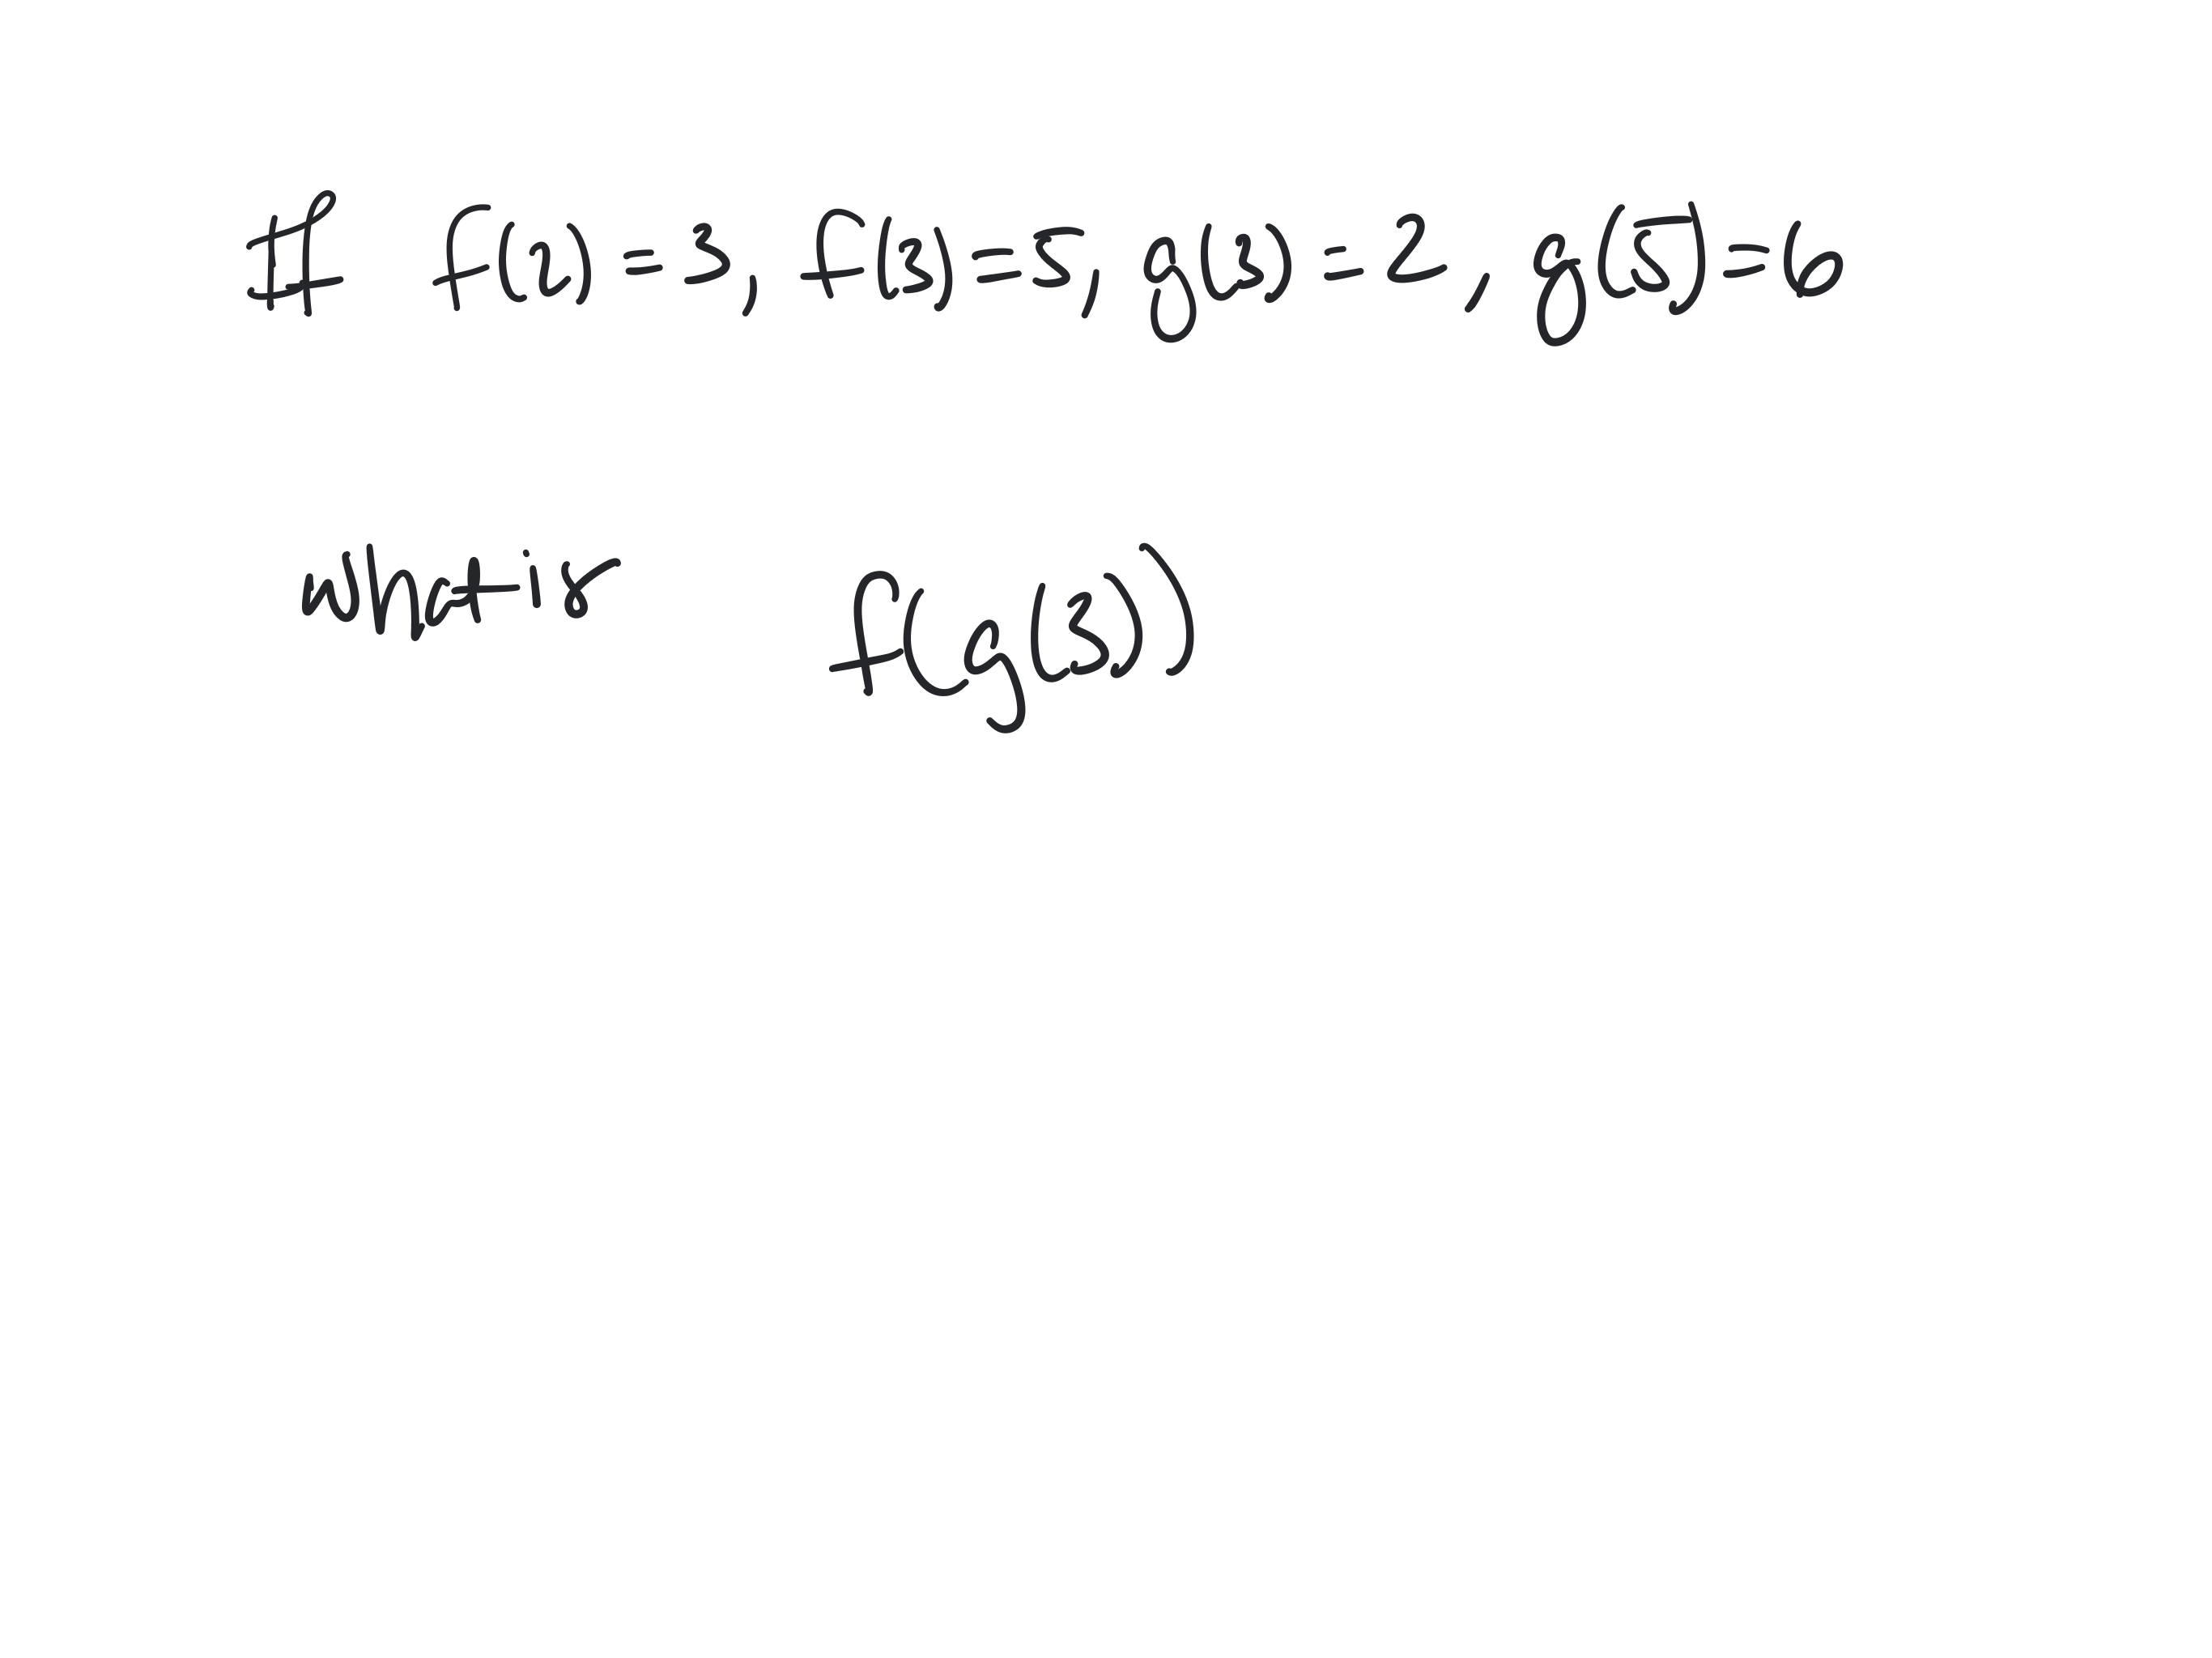 If f(2) = 3, f(3) = 5, g(3) = 2, g(5) = 6
what is f(g(3))